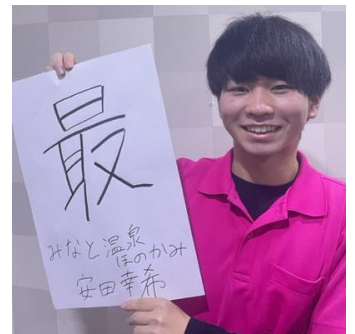 最
みなと温泉
ほのかみ
安田幸希